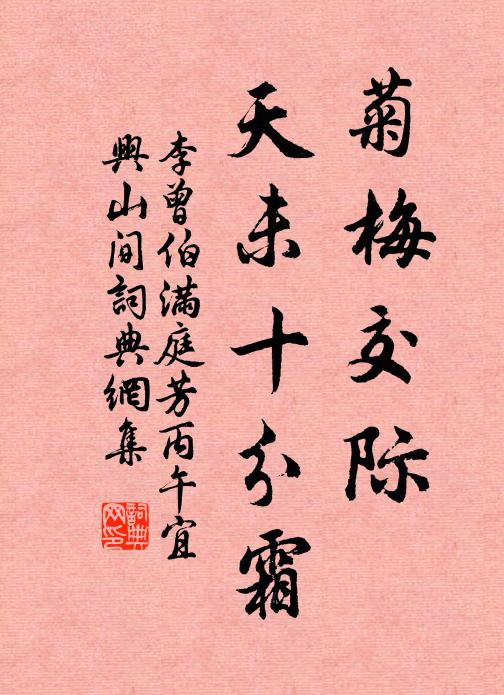 菊梅交际
天未十分霜
李曾伯满庭芳丙午宜
興山间詞典網集
詞典网印